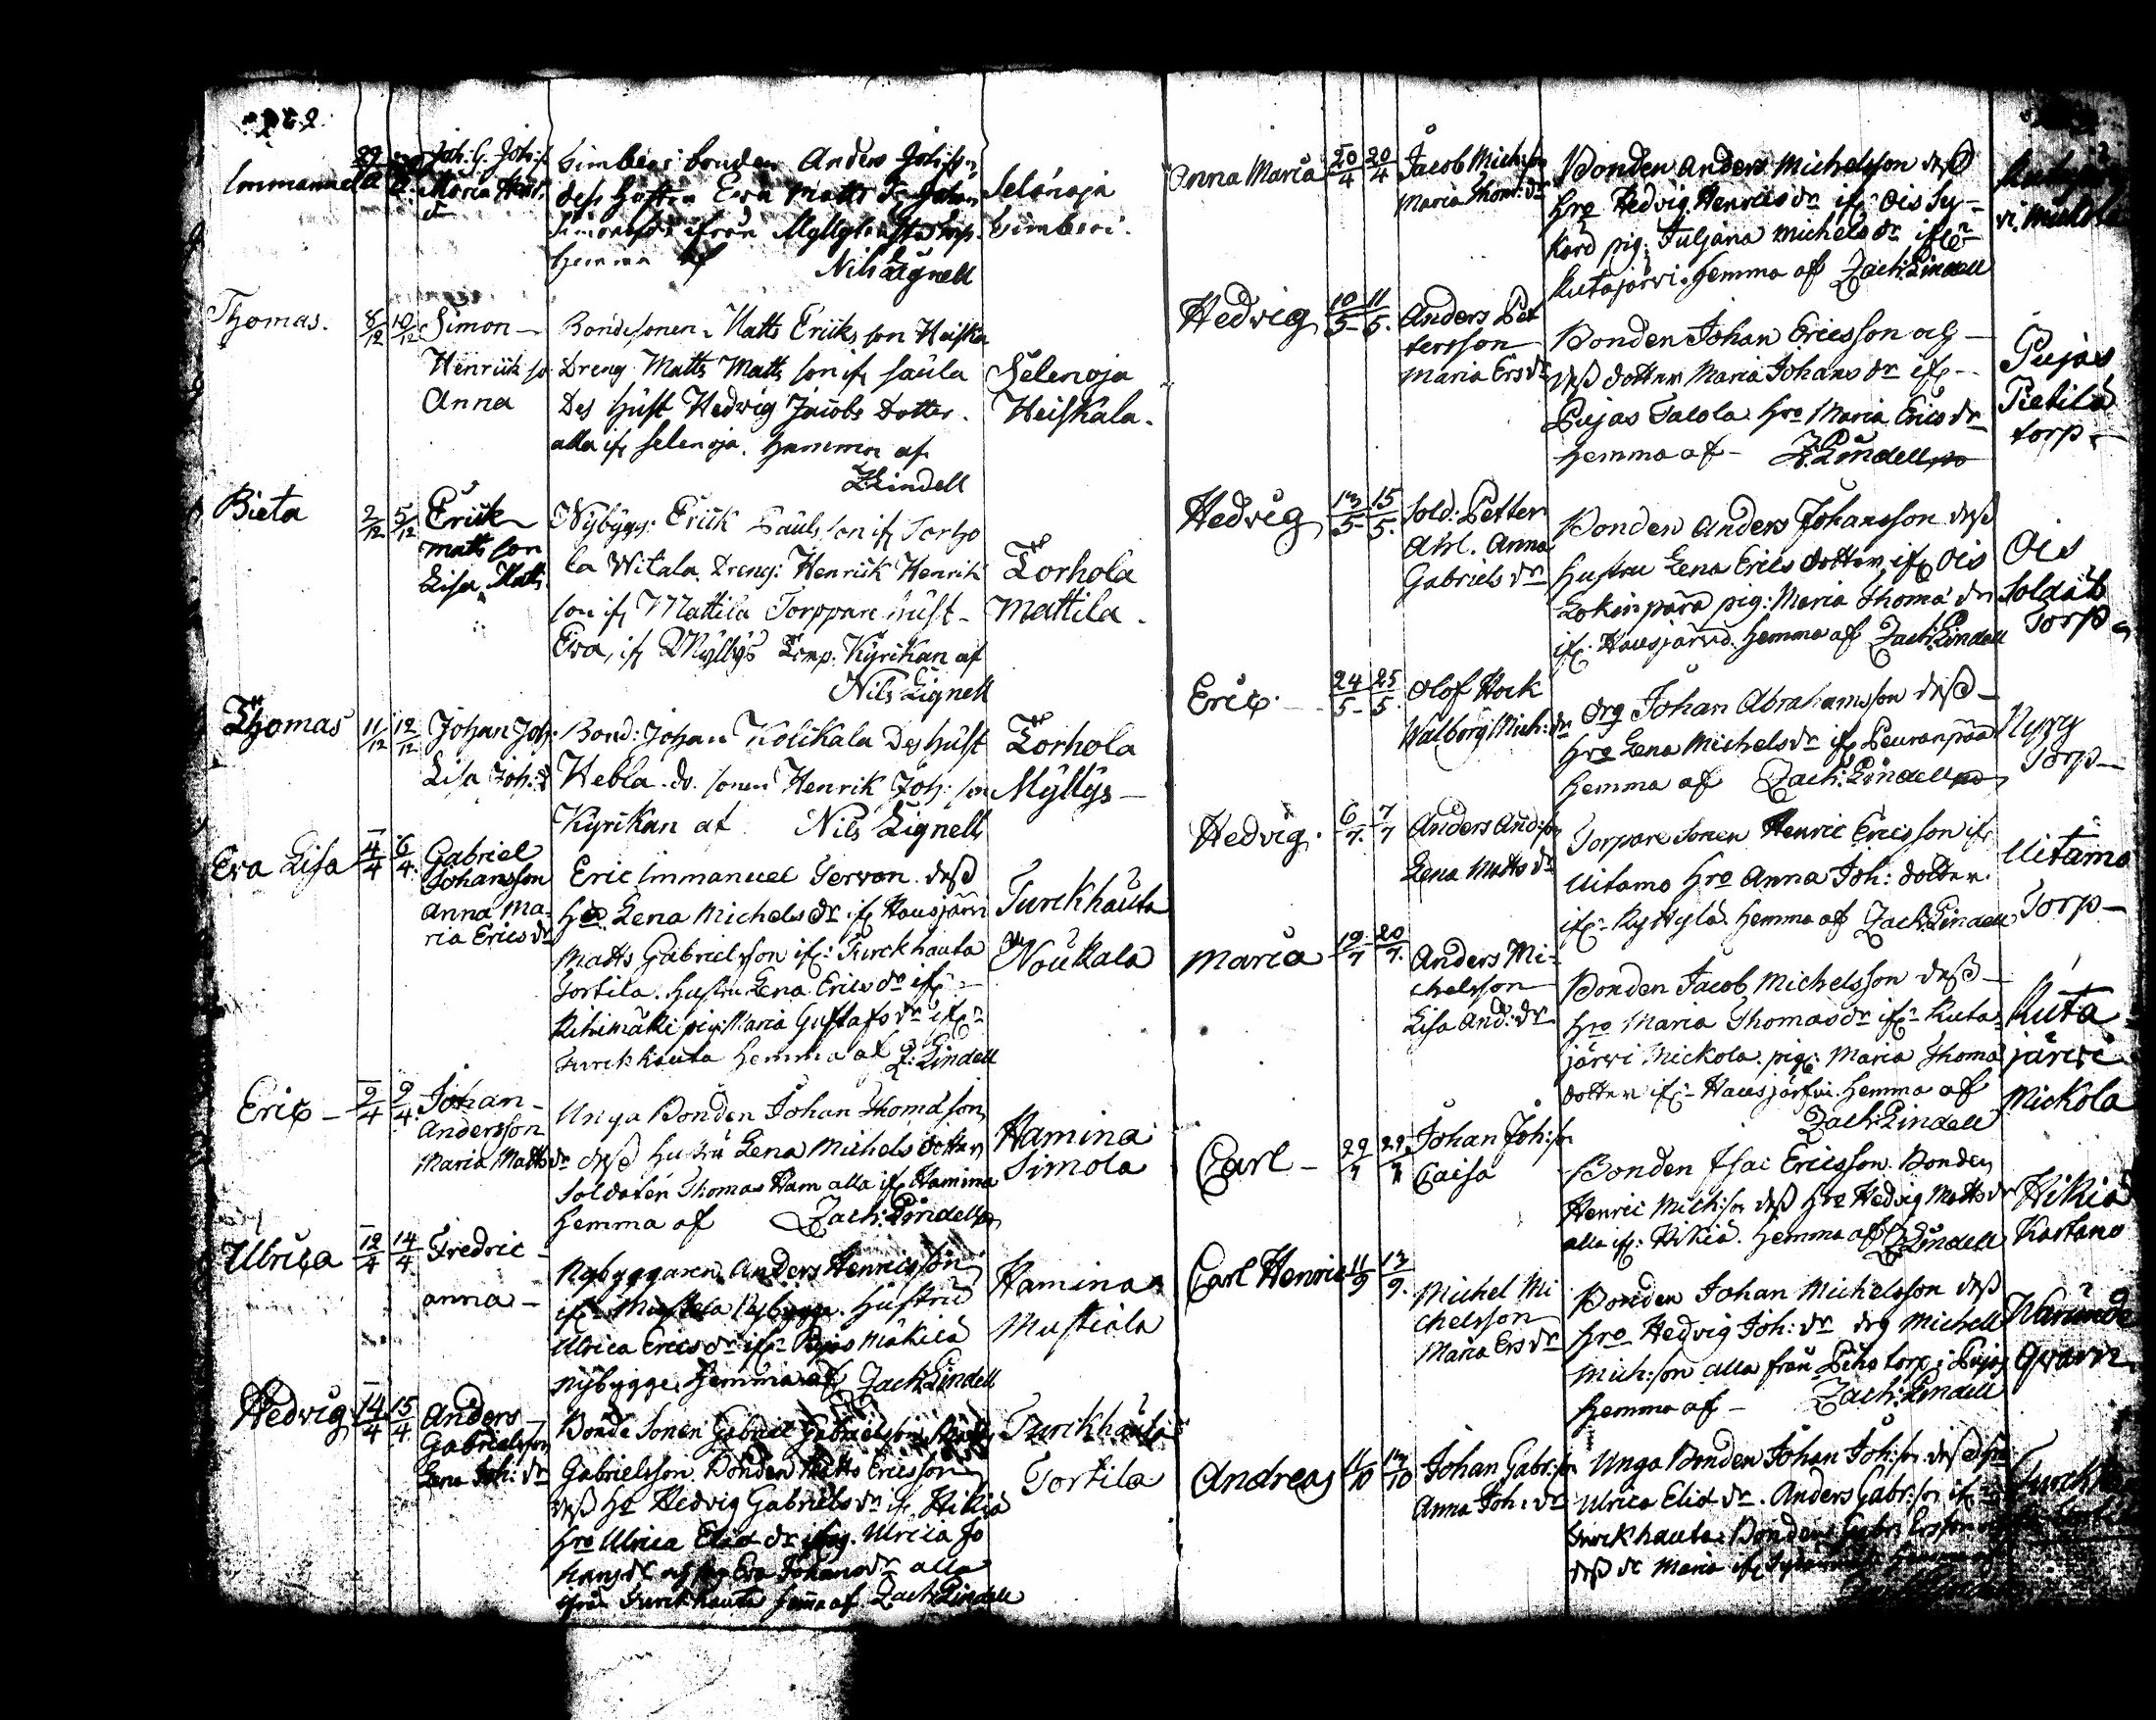 Immanuel
Maria
Simberi bonden Anders Joh:son
dess hustru Eva Matts dr
ifrån
hemma af Nils Lignell
Selänoja
Simberi.
Thomas. 8/12 10/12 Simon
Henrik so
Anna
Bondesonen Matts Eriks son Heiska
Dreng Matts Matts son if saula
Des Hust Hedvig Jacobs Dotter.
alla if selenoja. Hemma af
Z Lindell
Selenoja
Heiskala.
Bieta 2/12 5/12 Erick
Matts son
Lisa Matts
Nybygg: Erick Pauls son if Torho
la Witala. Dreng: Henrik Henrik
son if Mattila Torppare hust
Eva, if Myllys Torp. Kyrikan af
Nils Lignell
Torhola
Mattila.
Thomas 11/12 12/12 Johan Joh:
Lisa Joh: d
Bond: Johan Kolikala Des hust
Hebla. do. sonen Henrik Joh: son
Kyrikan af Nils Lignell
Torhola
Myllys
Eva Lisa 4/4 6/4 Gabriel
Johansson
Anna Ma-
ria Erics dr
Eric Immanuel Tervon. dess
Hro Lena Michels dr ifr Hausjärvi
Matts Gabrielsson ifr: Turckhauta
Tortila. Hustru Lena Erics dr ifr
Rihimäki pig: Maria Gustafs dr ifr
Turckhauta hemma af Z: Lindell
Turckhauta
Noukala
Eric 9/4 9/4 Johan
Andersson
Maria Matts dr
Unga Bonden Johan Thomasson
dess hustru Lena Michels dotter
Soldaten Thomas Ham alla ifr Hamina
hemma af Zach: Lindell
Hamina
Simola
Ulrica 12/4 14/4 Fredric
anna
Nybyggaren Anders Henricsson
ifr Hustru
Ulrica Erics dr ifr Pujas Mäkilä
nybygge. hemma af Zach: Lindell
Hamina
Mustiala
Hedvig 14/4 15/4 Anders
Gabrielsson
Lena Joh: dr
Bonde Sonen Gabriel Gabrielsson
Gabrielsson. Bonden Matts Ericsson
dess Hro Hedvig Gabriels dr ifr Hikiä
Hro Ulrica Elias dr Ulrica Jo
hans dr Eva Johans dr alla
ifrån Turckhauta hemma af Zach: Lindell
Turckhauta
Tortila
Anna Maria 20/4 20/4 Jacob Mich:son
Maria Thom: dr
Bonden Anders Michelsson dess
Hro Hedvig Henrics dr ifr Ois Sy-
kärö pig: Juljana Michels dr ifr
Kutajärvi. hemma af Zach: Lindell
Hedvig 10/5 11/5. Anders Pet
tersson
Maria Ers dr
Bonden Johan Ericsson och
dess dotter Maria Johans dr ifr
Pujas Talola. Hro Maria Erics dr
hemma af Z. Lindell
Pujas
Pietilä
torp
Hedvig 13/5 15/5. Sold: Petter
Ahl. Anna
Gabriels dr
Bonden Anders Johansson dess
hustru Lena Erics dotter ifr Ois
Lokinpärä pig: Maria Thoma dr
ifr Hausjärvi. hemma af Zach: Lindell
Ois
Soldats
Torp
Eric 24/5 25/5. Olof Hock
Walborg Mich: dr
Drg Johan Abrahamsson dess
Hro Lena Michels dr ifr Peuranpää
hemma af Zach: Lindell
Nyry
Torp
Hedvig. 6/7. 7/7 Anders And:son
Lena Matts dr
Torpare sonen Henric Ericsson ifr
Uitamo Hro Anna Joh: dotter.
ifr Ryttylä. hemma af Zach: Lindell
Uitamo
Torp
Maria 19/7 20/7. Anders Mi-
chelsson
Lisa And: dr
Bonden Jacob Michelsson dess
Hro Maria Thomas dr ifr Kuta-
järvi Mickola. pig: Maria Thoma
dotter ifr Hausjärfvi. hemma af
Zach: Lindell
Kuta
järvi
Mickola
Carl 29/7 29/7 Johan Joh:son
Caisa
Bonden Isac Ericsson. Bonden
Henric Mich:son dess Hro Hedvig Matts dr
alla ifr: Hikiä. hemma af Z Lindell
Hikiä
Kartano
Carl Henric 11/9 13/9. Michel Mi
chelsson
Maria Ers dr
Bonden Johan Michelsson dess
Hro Hedvig Joh: dr drg Michell
Mich:son alla från torp i Pujas
hemma af Zach: Lindell
qvarn
Andreas 11/10 13/10 Johan Gabr:son
Anna Joh: dr
Unga Bonden Johan Joh:son dess Hro
Ulrica Elias dr. Anders Gabr:son ifr
Turckhauta. Bonden Gabr:
dess dr Maria ifr